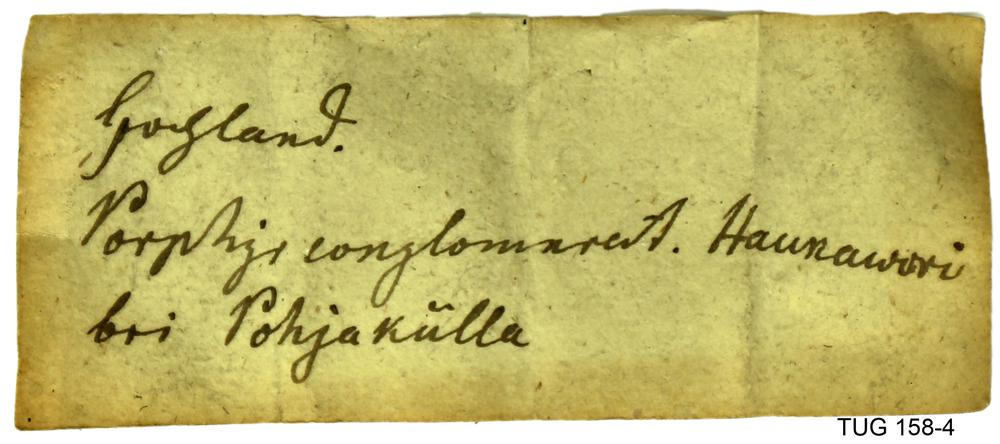 Hochland.
Porphyr conglomerat. Haukawori
bei Pohjakülla
TUG 158-4